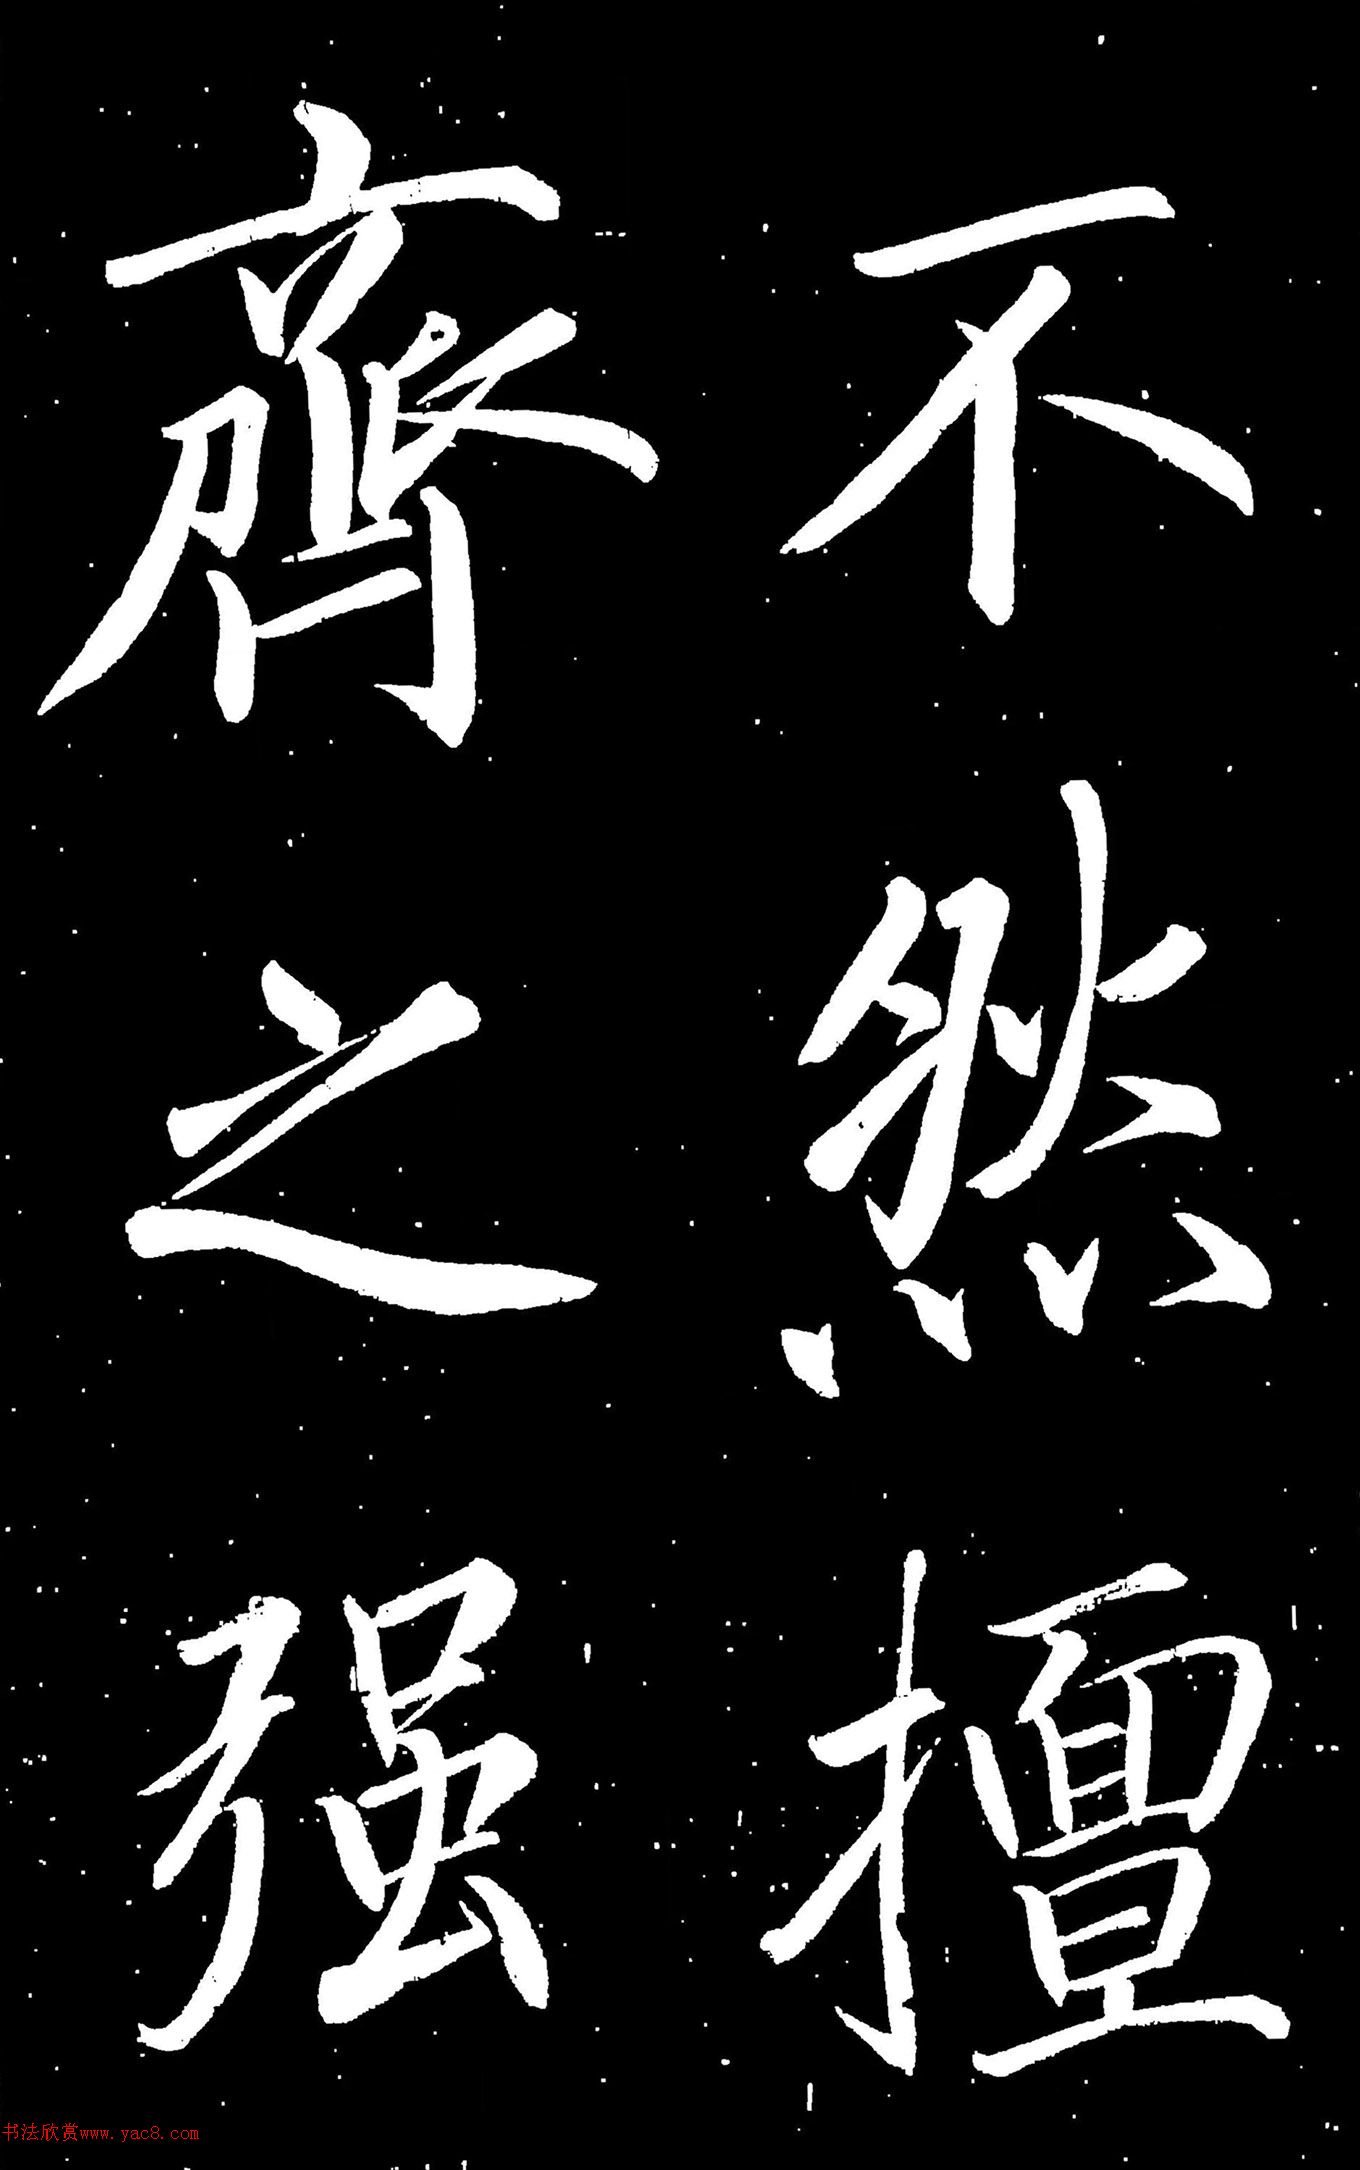 不然擅
齊之强
书法欣赏www.yac8.com